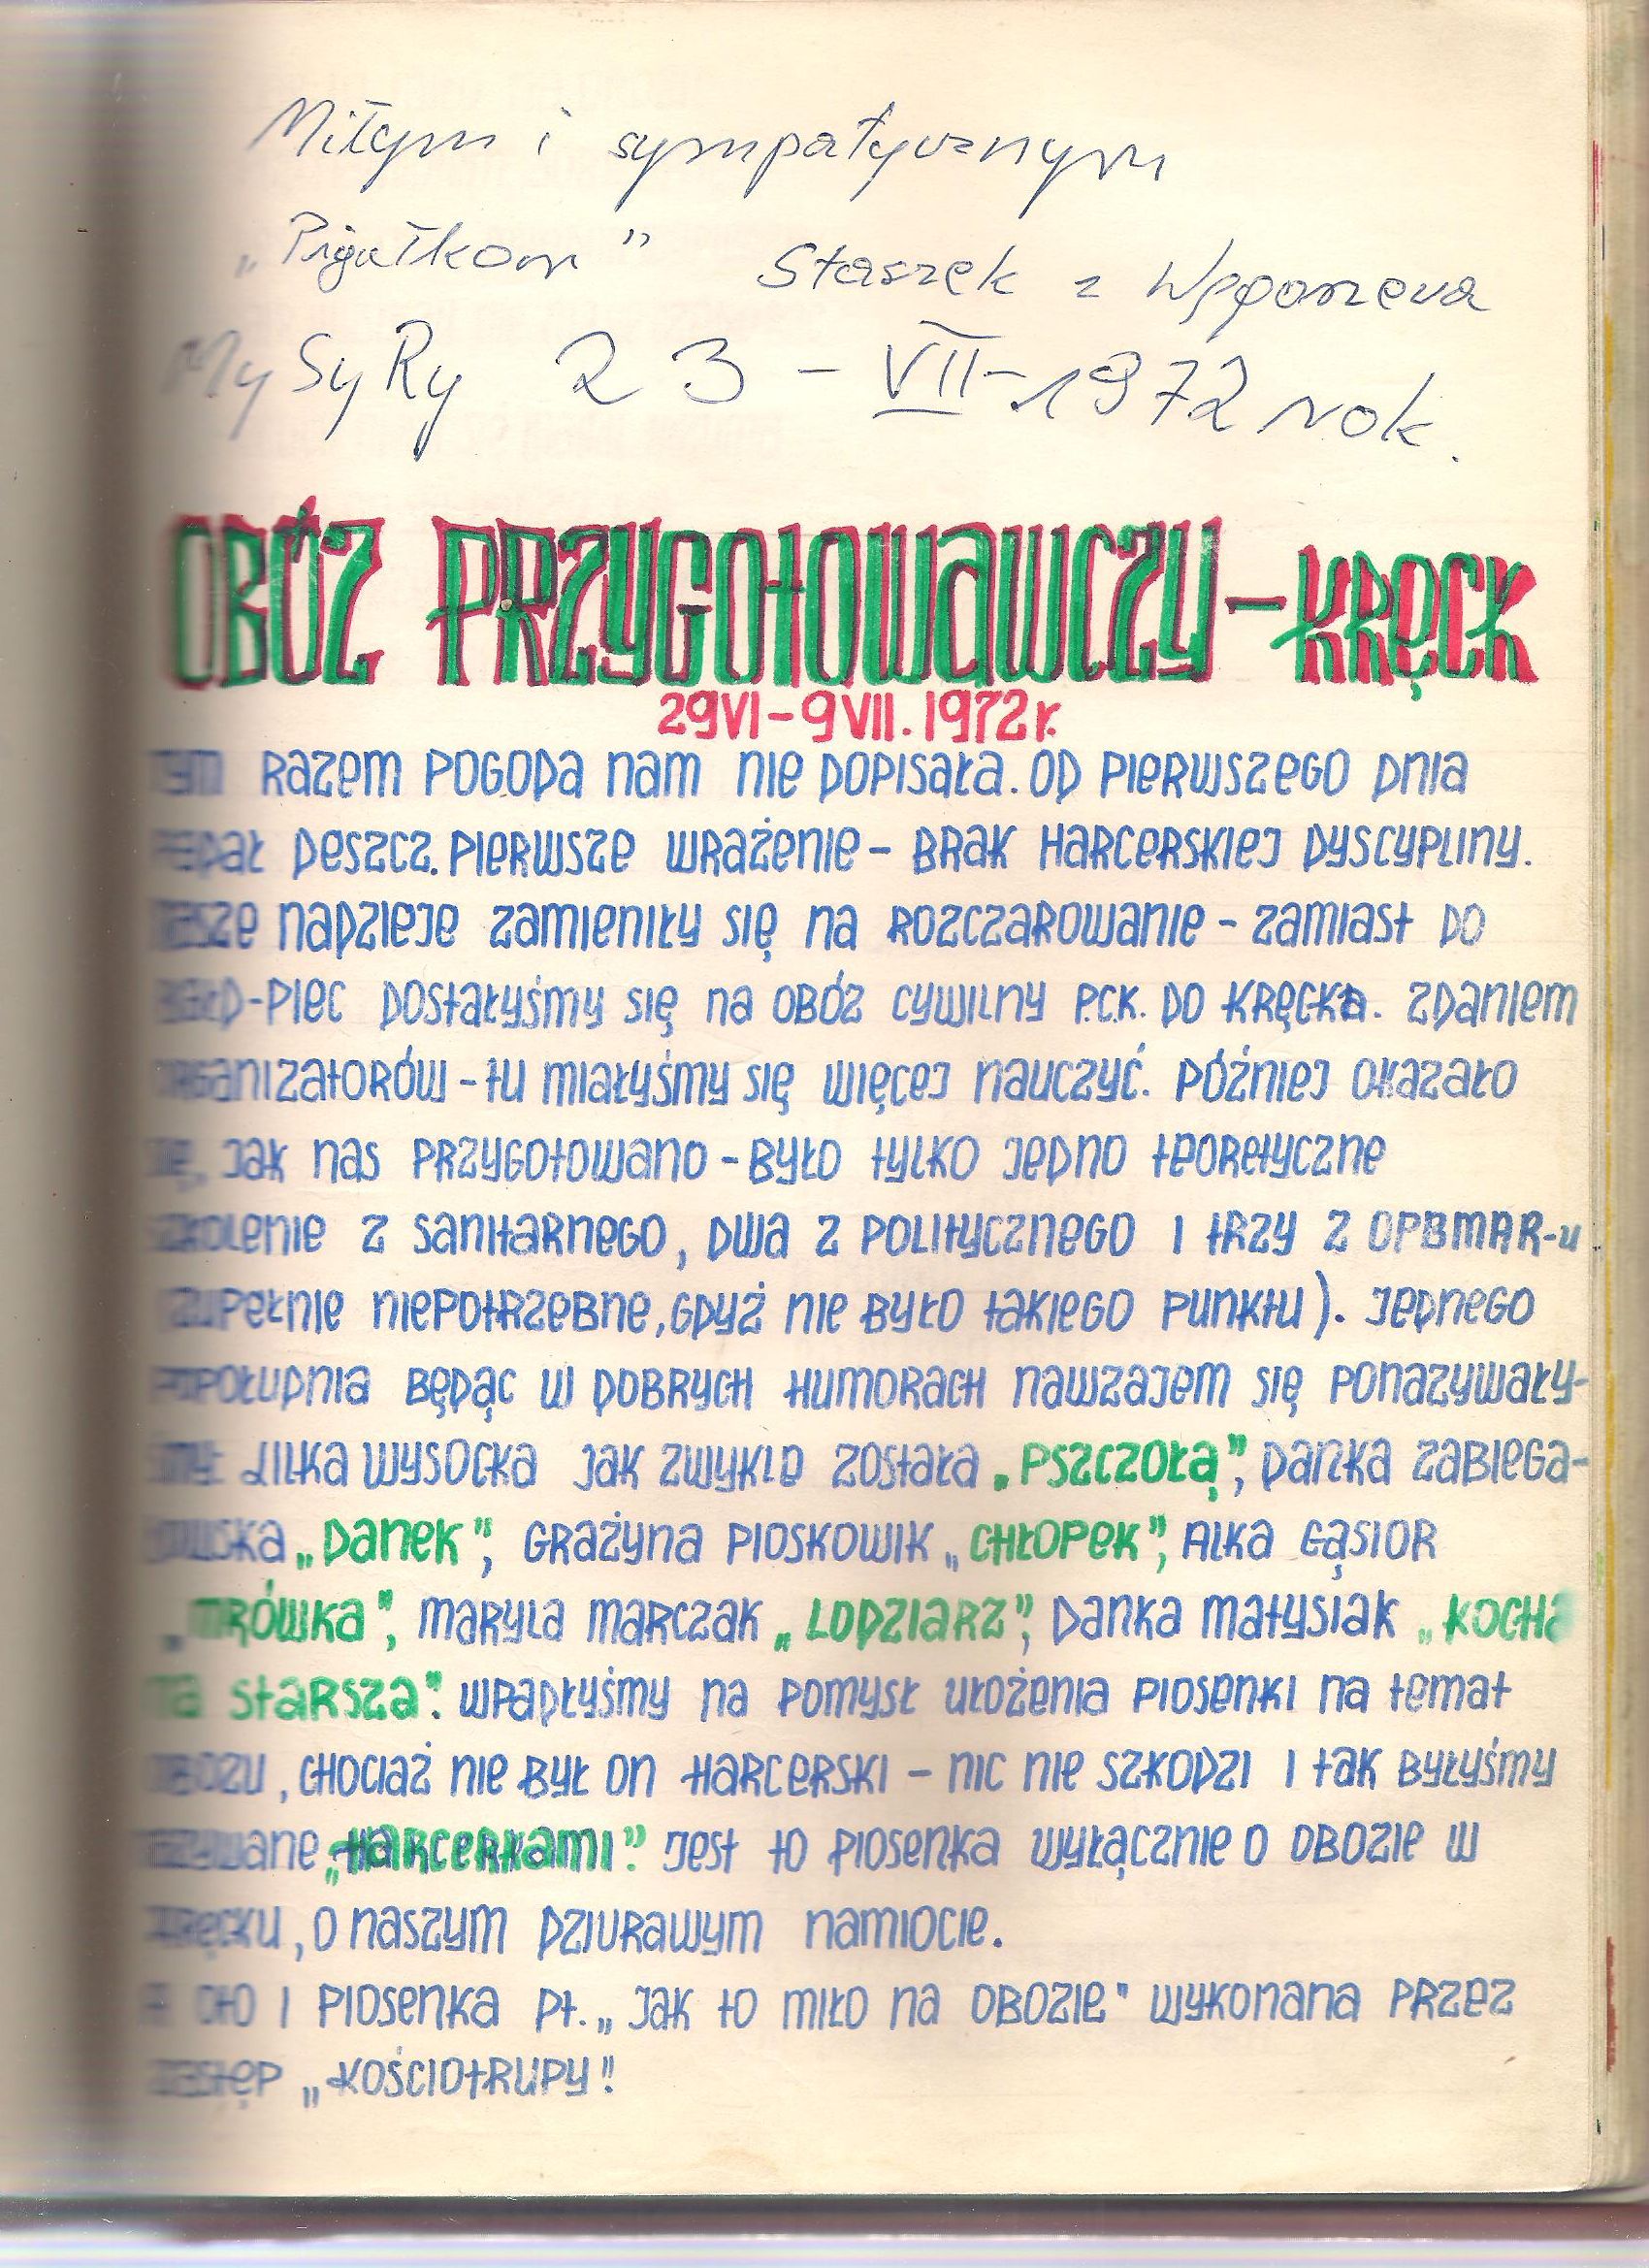 Miłym i sympatycznym
„Pigułkom" Staszek z Węgorzewa
MySyRy 23 - VII - 1972 rok.
OBÓZ PRZYGOTOWAWCZY - KRĘCK
29 VI - 9 VII. 1972 r.
TYM RAZEM POGODA NAM NIE DOPISAŁA. OD PIERWSZEGO DNIA
DESZCZ. PIERWSZE WRAŻENIE - BRAK HARCERSKIEJ DYSCYPLINY.
NASZE NADZIEJE ZAMIENIŁY SIĘ NA ROZCZAROWANIE - ZAMIAST DO
-PIEC DOSTAŁYŚMY SIĘ NA OBÓZ CYWILNY P.C.K. DO KRĘCKA. ZDANIEM
ORGANIZATORÓW - TU MIAŁYŚMY SIĘ WIĘCEJ NAUCZYĆ. PÓŹNIEJ OKAZAŁO
SIĘ, JAK NAS PRZYGOTOWANO - BYŁO TYLKO JEDNO TEORETYCZNE
SZKOLENIE Z SANITARNEGO, DWA Z POLITYCZNEGO I TRZY Z OPBMAR-u
ZUPEŁNIE NIEPOTRZEBNE, GDYŻ NIE BYŁO TAKIEGO PUNKTU). JEDNEGO
POPOŁUDNIA BĘDĄC W DOBRYCH HUMORACH NAWZAJEM SIĘ PONAZYWAŁY-
ŚMY: LILKA WYSOCKA JAK ZWYKLE ZOSTAŁA „PSZCZOŁĄ", DANKA ZABIEGA-
ŁOWSKA „DANEK", GRAŻYNA PIOSKOWIK „CHŁOPEK", ALKA GĄSIOR
„MRÓWKA", MARYLA MARCZAK „LODZIARZ", DANKA MATYSIAK „KOCHA
NA STARSZA". WPADŁYŚMY NA POMYSŁ UŁOŻENIA PIOSENKI NA TEMAT
OBOZU, CHOCIAŻ NIE BYŁ ON HARCERSKI - NIC NIE SZKODZI I TAK BYŁYŚMY
NAZYWANE „HARCERKAMI". JEST TO PIOSENKA WYŁĄCZNIE O OBOZIE W
KRĘCKU, O NASZYM DZIURAWYM NAMIOCIE.
A OTO I PIOSENKA PT. „JAK TO MIŁO NA OBOZIE" WYKONANA PRZEZ
ZASTĘP „KOŚCIOTRUPY"!